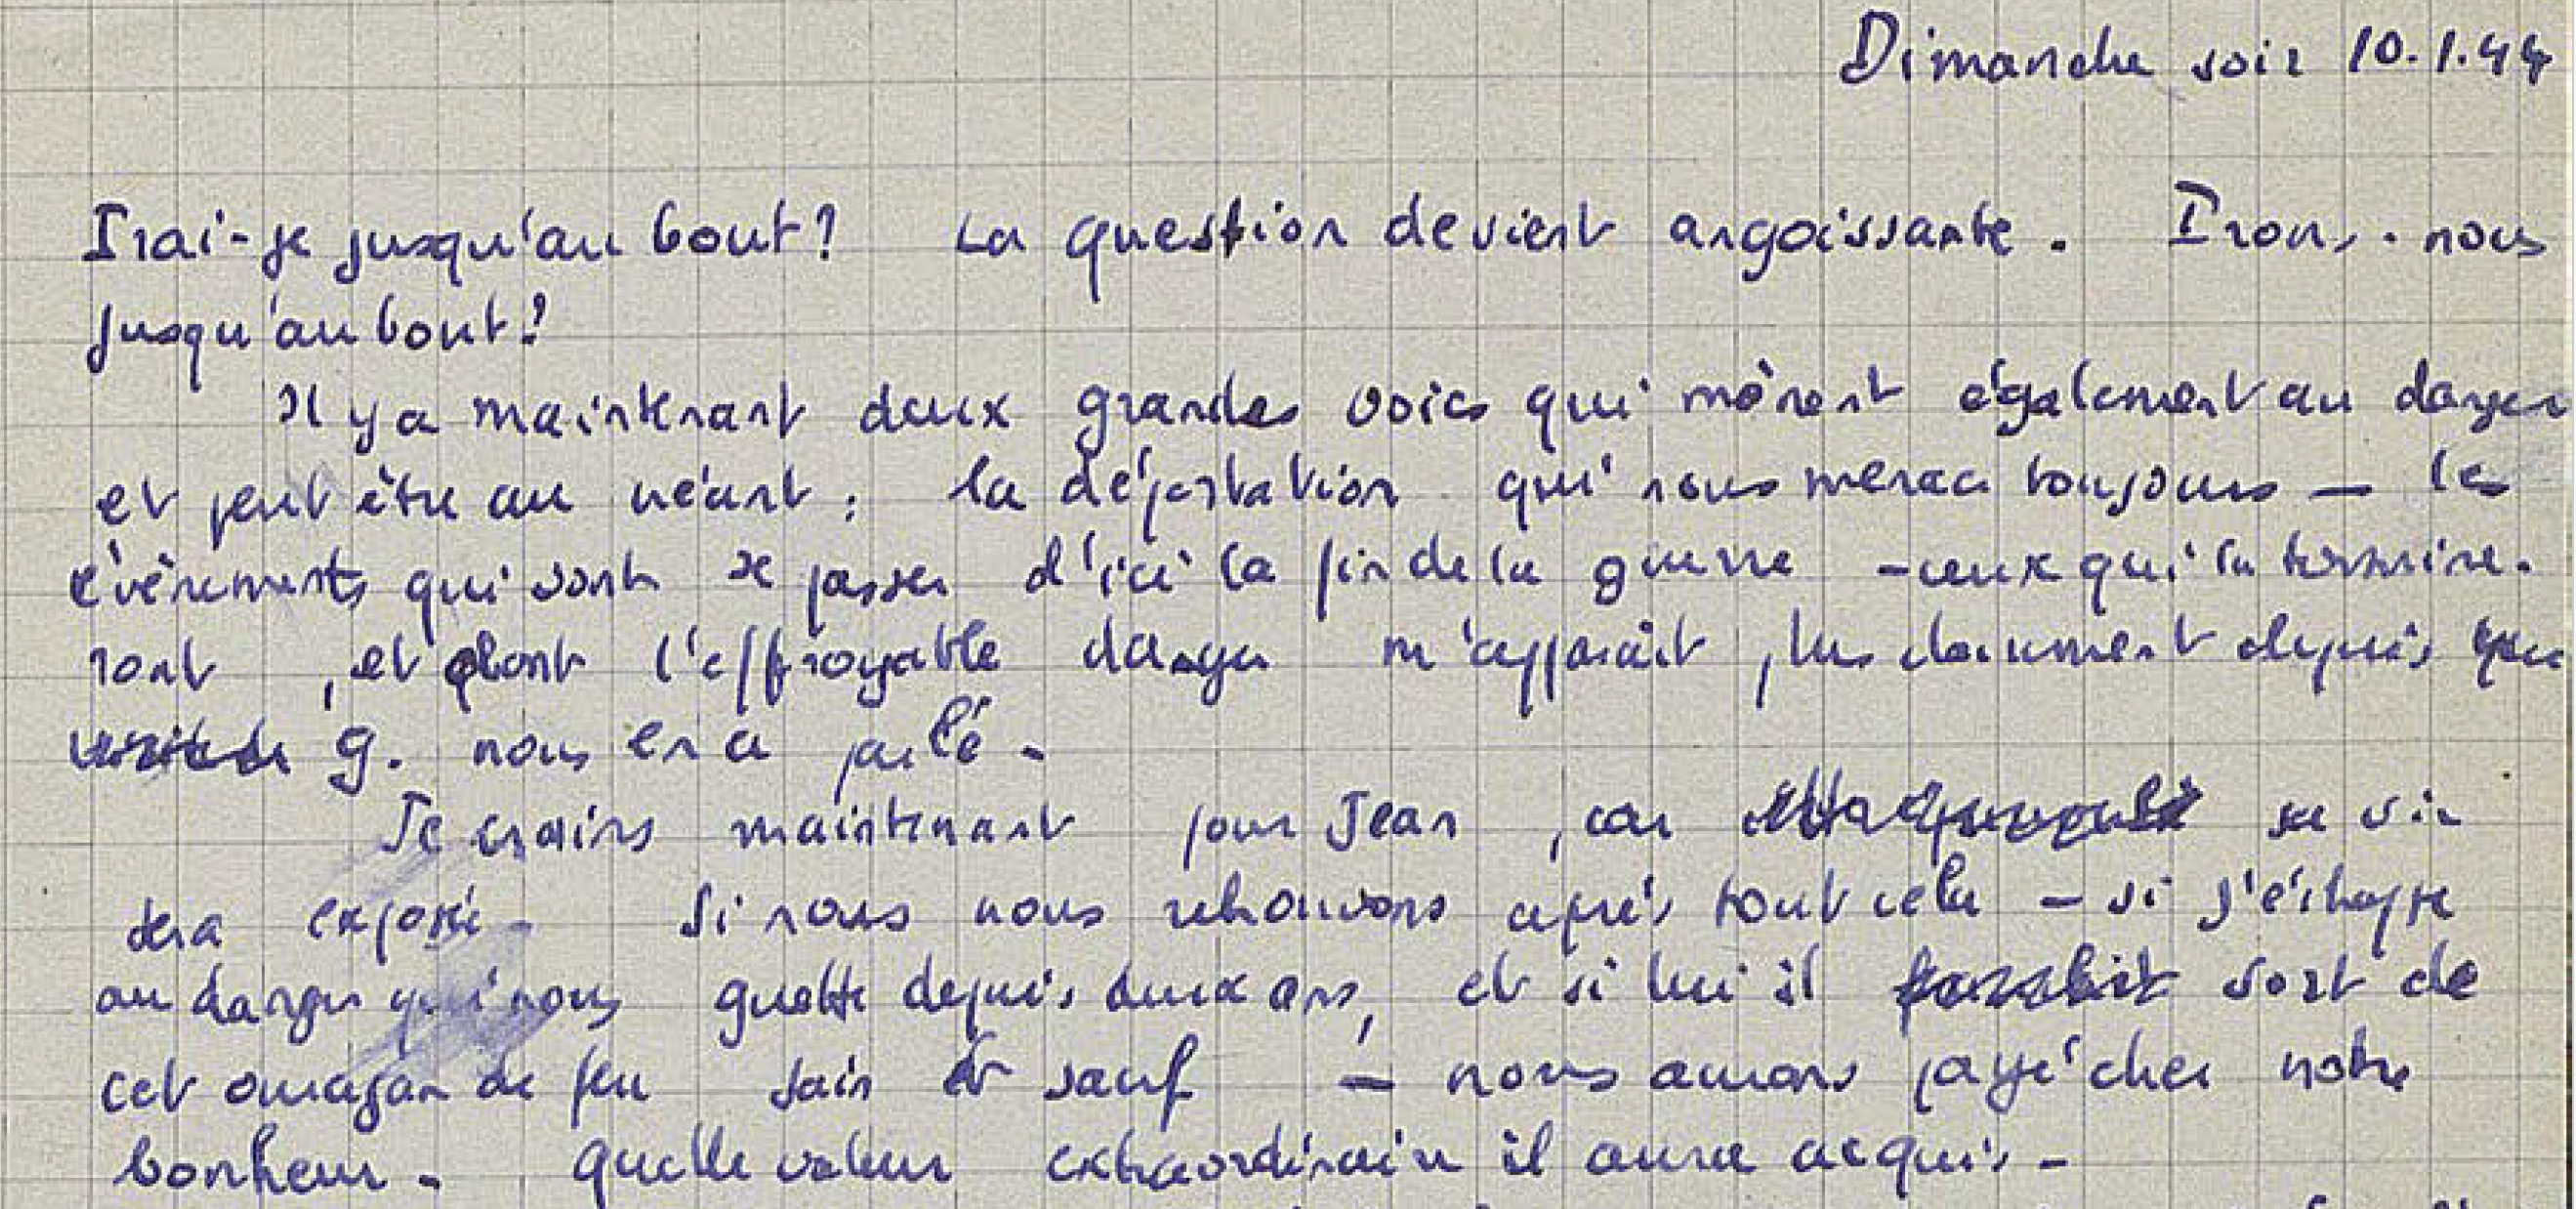 Dimanche soir 10.1.44
Irai-je jusqu'au bout? La question devient angoissante. Irons-nous
jusqu'au bout?
Il y a maintenant deux grandes voies qui mènent également au danger
et peut être au néant : la déportation qui nous menace toujours — les
évènements qui vont se passer d'ici la fin de la guerre — ceux qui la termine-
ront, et dont l'effroyable danger m'apparaît plus clairement depuis que
G. nous en a parlé -
Je crains maintenant pour Jean, car
exposé - Si nous nous retrouvons après tout cela - si j'échappe
au danger qui nous guette depuis deux ans, et si lui il sort de
cet ouragan de feu sain et sauf — nous aurons payé cher notre
bonheur - Quelle valeur extraordinaire il aura acquis -